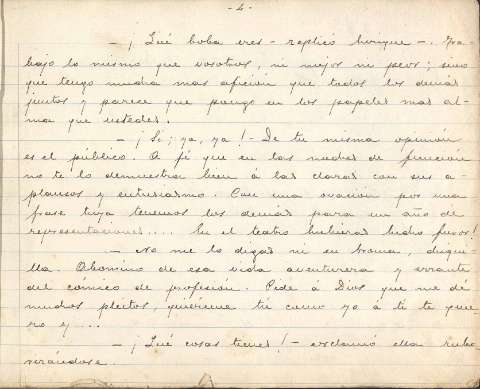 - 4 -
— ¡Qué boba eres - replicó Enrique -. Tra-
bajo lo mismo que vosotros, ni mejor ni peor; sino
que tengo mucha mas aficion que todos los demás
juntos y parece que pongo en los papeles mas al-
ma que ustedes.
— ¡Si; ya, ya! - De tu misma opinión
es el público. A fé que en las noches de funcion
no te lo demuestra bien á las claras con sus a-
plausos y entusiasmo. Con una ovación por una
frase tuya tenemos los demás para un año de
representaciones.... En el teatro hubieras hecho furor!
— No me lo digas ni en broma,
lla. Abomino de esa vida aventurera y errante
del cómico de profesión. Pide á Dios que me dé
muchos pleitos, quiéreme tú como yo á ti te quie-
ro y....
— ¡Qué cosas tienes! - exclamó ella rubo-
rizándose.